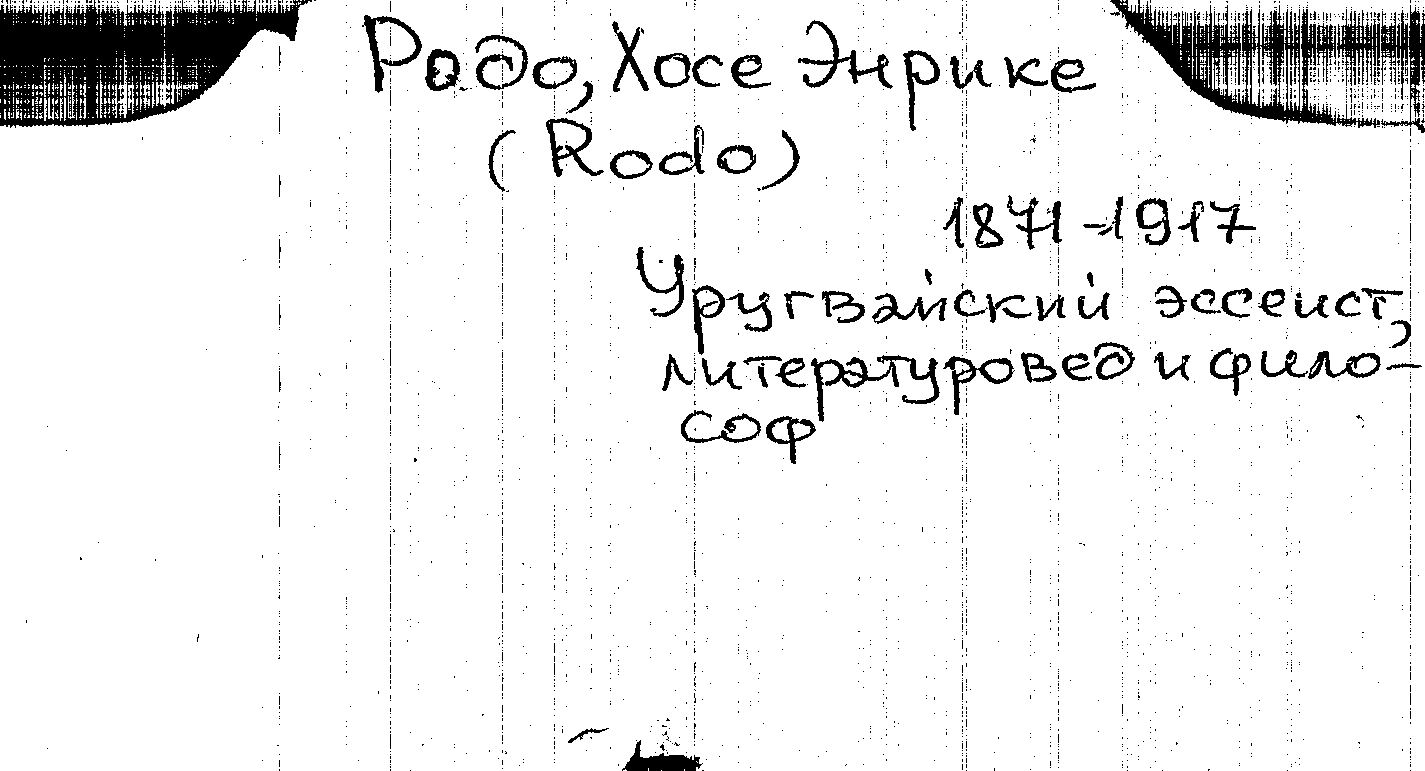 Родо, Хосе Энрике
(Rodo)
1871-1917
Уругвайский эссеист,
литературовед и фило-
соф